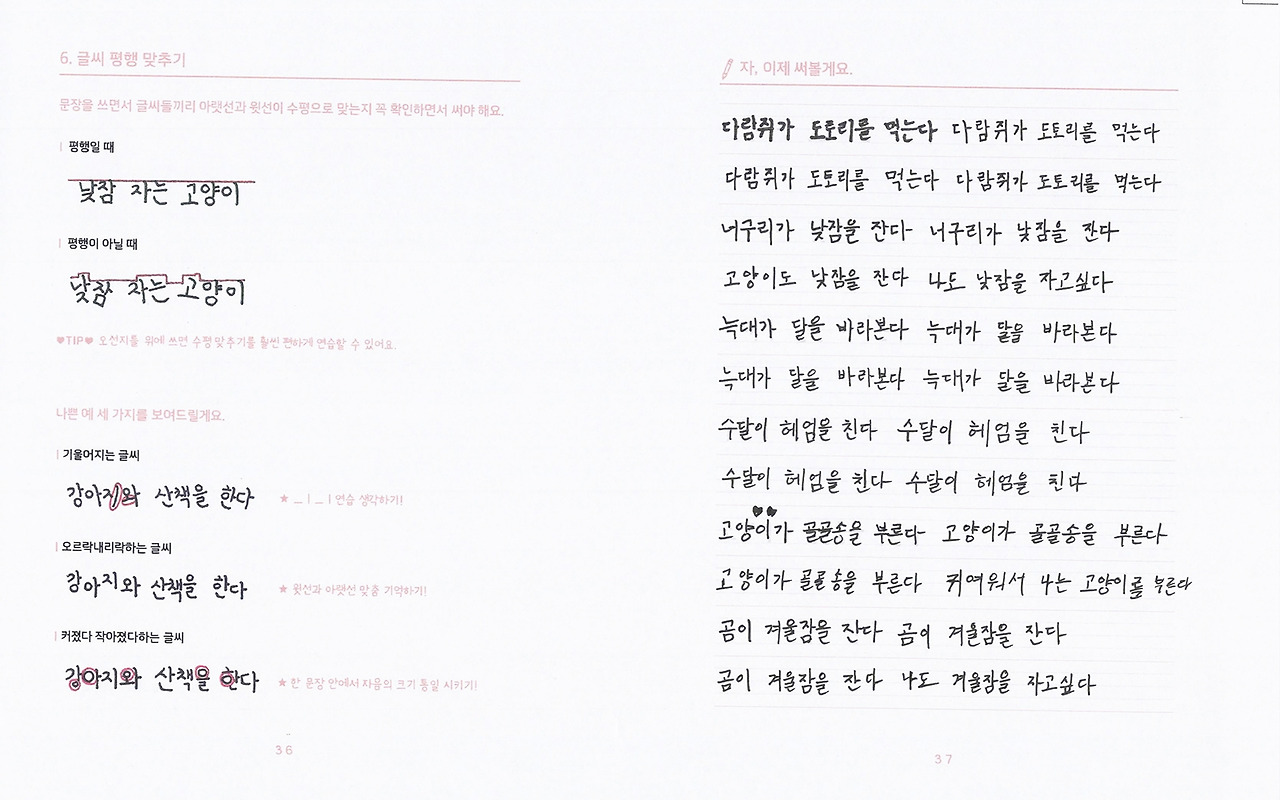 6. 글씨 평행 맞추기
문장을 쓰면서 글씨들끼리 아랫선과 윗선이 수평으로 맞는지 꼭 확인하면서 써야 해요.
평행일 때
낮잠 자는 고양이
평행이 아닐 때
낮잠 자는 고양이
♥TIP♥ 오선지를 위에 쓰면 수평 맞추기를 훨씬 편하게 연습할 수 있어요.
나쁜 예 세 가지를 보여드릴게요.
기울어지는 글씨
강아지와 산책을 한다
★ ㅡ ㅣ ㅡ ㅣ 연습 생각하기!
오르락내리락하는 글씨
강아지와 산책을 한다
★ 윗선과 아랫선 맞춤 기억하기!
커졌다 작아졌다하는 글씨
강아지와 산책을 한다
★ 한 문장 안에서 자음의 크기 통일 시키기!
36
자, 이제 써볼게요.
다람쥐가 도토리를 먹는다 다람쥐가 도토리를 먹는다
다람쥐가 도토리를 먹는다 다람쥐가 도토리를 먹는다
너구리가 낮잠을 잔다 너구리가 낮잠을 잔다
고양이도 낮잠을 잔다 나도 낮잠을 자고싶다
늑대가 달을 바라본다 늑대가 달을 바라본다
늑대가 달을 바라본다 늑대가 달을 바라본다
수달이 헤엄을 친다 수달이 헤엄을 친다
수달이 헤엄을 친다 수달이 헤엄을 친다
고양이가 골골송을 부른다 고양이가 골골송을 부른다
고양이가 골골송을 부른다 귀여워서 나는 고양이를 부른다
곰이 겨울잠을 잔다 곰이 겨울잠을 잔다
곰이 겨울잠을 잔다 나도 겨울잠을 자고싶다
37